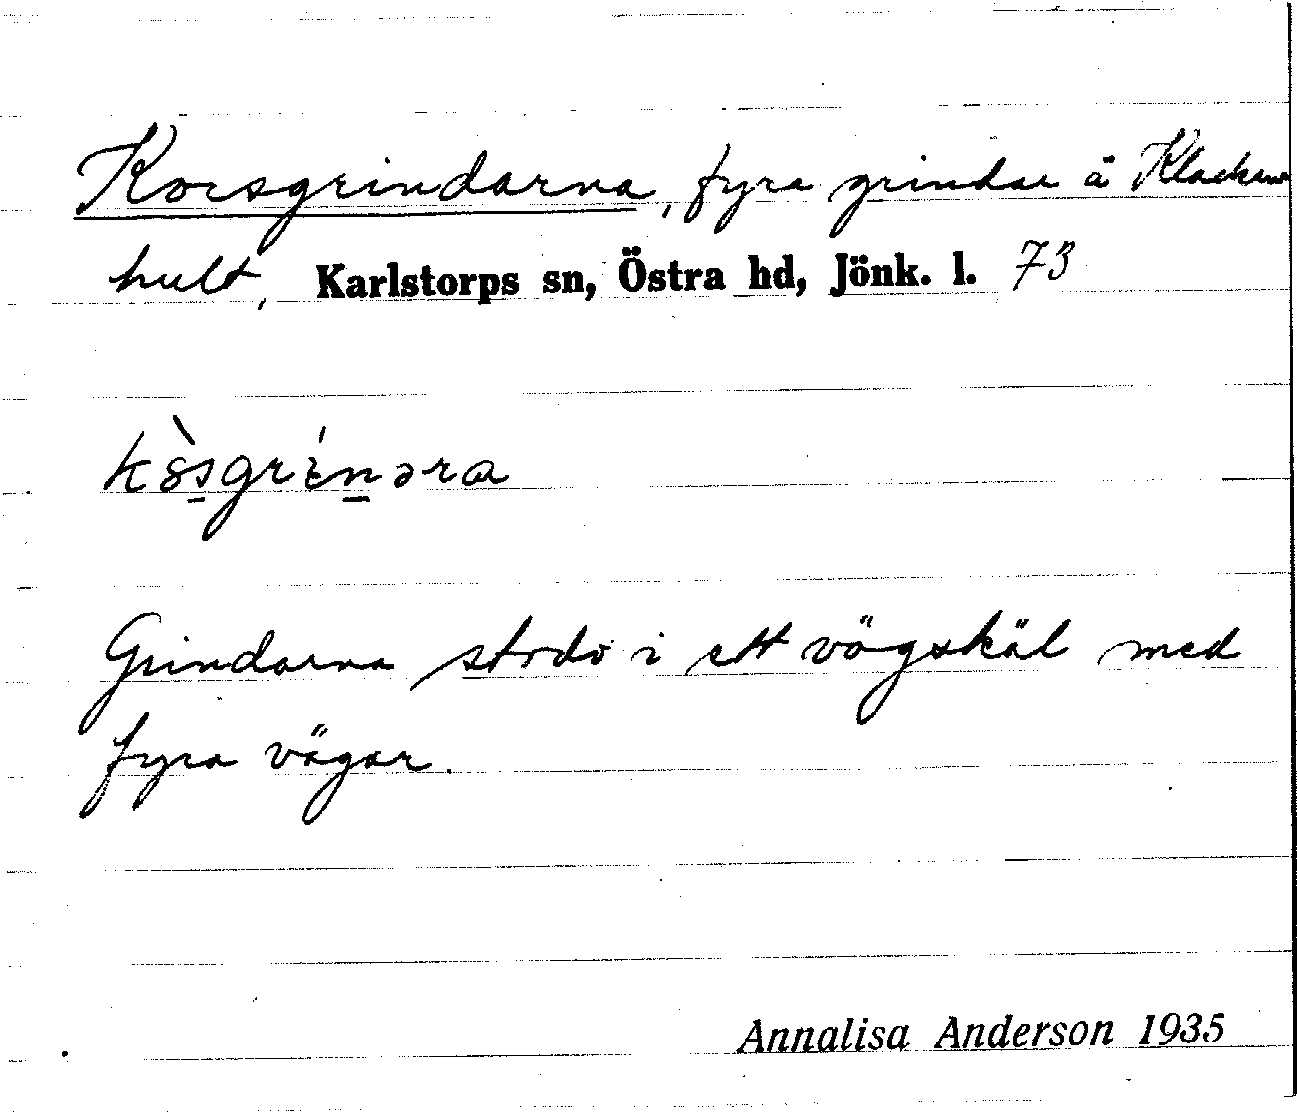 Korsgrindarna, fyra grindar å Klacken
hult, Karlstorps sn, Östra hd, Jönk. l. 73
kòsgrínəra
Grindarna stodo i ett vägskäl med
fyra vägar.
Annalisa Anderson 1935